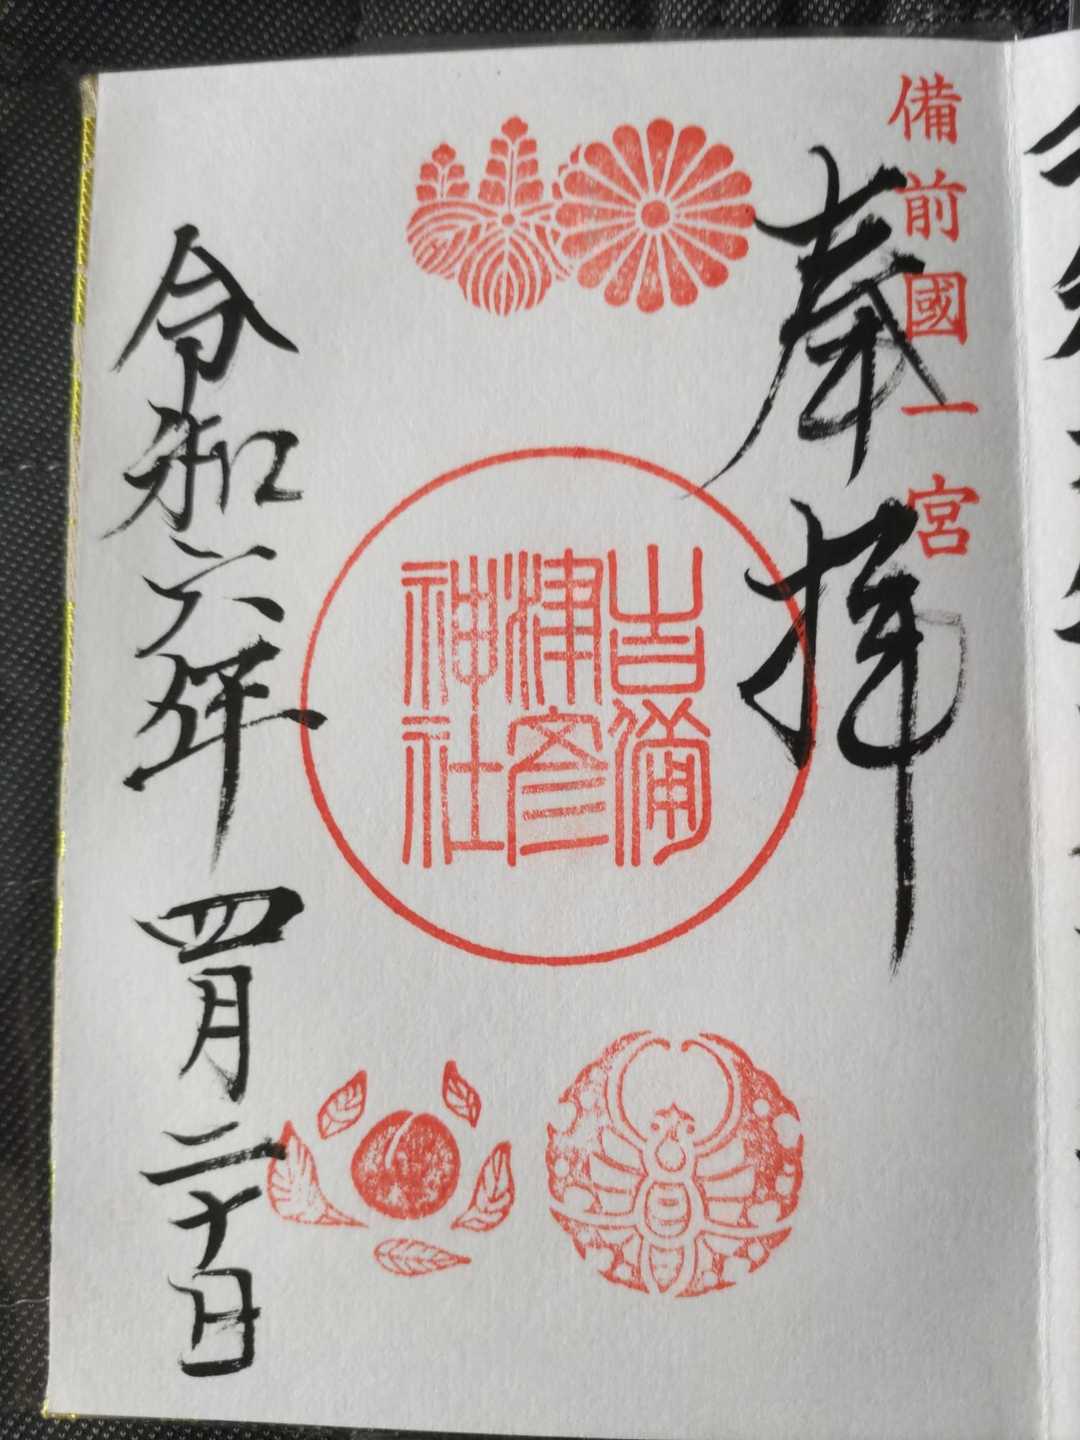 備前國一宮
奉拝
吉備
津彦
神社
令和六年四月二十日